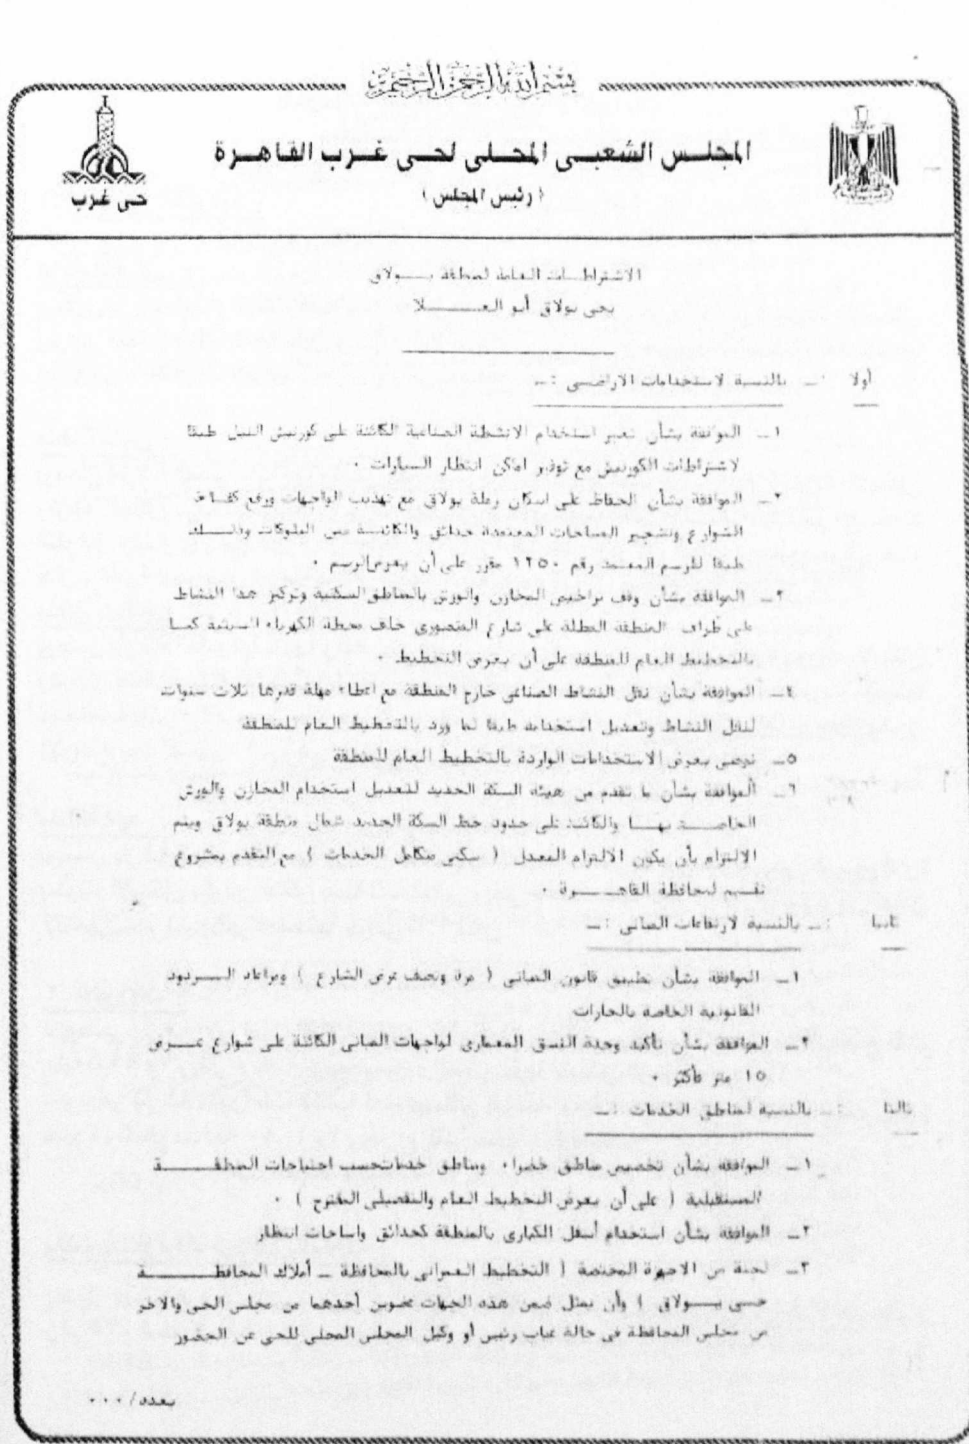 بسم الله الرحمن الرحيم
المجلس الشعبى المحلى لحى غرب القاهرة
( رئيس المجلس )
حى غرب
الاشتراطات العامة لمنطقة بولاق
بحى بولاق أبو العلا
أولا :ـ بالنسبة لاستخدامات الاراضى :ـ
١ـ الموافقة بشأن تغير استخدام الانشطة الصناعية الكائنة على كورنيش النيل طبقا
لاشتراطات الكورنيش مع توفير اماكن انتظار السيارات .
٢ـ الموافقة بشأن الحفاظ على اسكان رملة بولاق مع تهذيب الواجهات ورفع كفاءة
الشوارع وتشجير المساحات المعتمدة حدائق والكائنة بين البلوكات وذلك
طبقا للرسم المعتمد رقم ١٢٥٠ مقرر على أن يعرض الرسم .
٣ـ الموافقة بشأن وقف تراخيص المخازن والورش بالمناطق السكنية وتركيز هذا النشاط
على طراف المنطقة المطلة على شارع المنصورى خلف محطة الكهرباء السبتية كما
بالتخطيط العام للمنطقة على أن يعرض التخطيط .
٤ـ الموافقة بشأن نقل النشاط الصناعى خارج المنطقة مع اعطاء مهلة قدرها ثلاث سنوات
لنقل النشاط وتعديل استخدامه طبقا لما ورد بالتخطيط العام للمنطقة
٥ـ نوصى بعرض الاستخدامات الواردة بالتخطيط العام للمنطقة
٦ـ الموافقة بشأن ما تقدم من هيئة السكة الحديد لتعديل استخدام المخازن والورش
الخاصة بهــا والكائنة على حدود خط السكة الحديد شمال منطقة بولاق ويتم
الالتزام بأن يكون الالتزام المعدل ( سكنى متكامل الخدمات ) مع التقدم بمشروع
تقسيم لمحافظة القاهرة .
ثانيا :ـ بالنسبة لارتفاعات المبانى :ـ
١ـ الموافقة بشأن تطبيق قانون المبانى ( مرة ونصف عرض الشارع ) ومراعاه الــردود
القانونية الخاصة بالحارات
٢ـ الموافقة بشأن تأكيد وحدة النسق المعمارى لواجهات المبانى الكائنة على شوارع عــرض
١٥ متر فأكثر .
ثالثا :ـ بالنسبة لمناطق الخدمات :ـ
١ـ الموافقة بشأن تخصيص مناطق خضراء ومناطق خدمات حسب احتياجات المنطقــة
المستقبلية ( على أن يعرض التخطيط العام والتفصيلى المقترح ) .
٢ـ الموافقة بشأن استخدام أسفل الكبارى بالمنطقة كحدائق واساحات انتظار
٣ـ لجنة من الاجهزة المختصة ( التخطيط العمرانى بالمحافظة ـ أملاك المحافظــة
حــى بــولاق ) وأن يمثل ضمن هذه الجهات عضوين أحدهما من مجلس الحى والاخر
من مجلس المحافظة فى حالة غياب رئيس أو وكيل المجلس المحلى للحى عن الحضور
بعده/ ٠٠٠